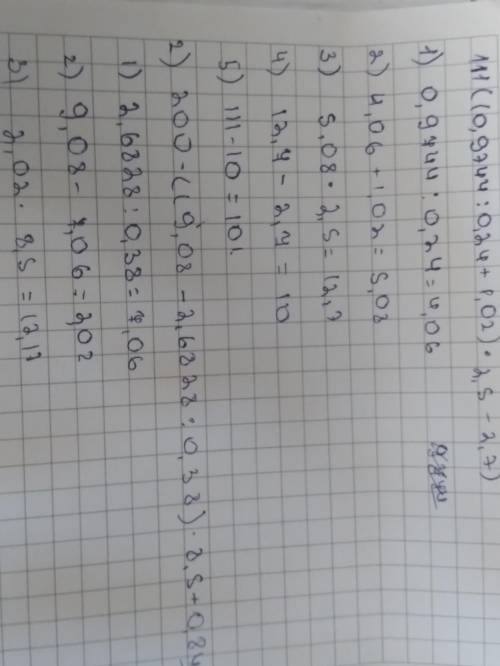 111((0,9744:0,24+1,02)·2,5-2,7)
1) 0,9744:0,24=4,06
2) 4,06+1,02=5,08
3) 5,08·2,5=12,7
4) 12,7-2,7=10
5) 111-10=101.
2) 200-((9,08-2,6828:0,38)·8,5+0,84
1) 2,6828:0,38=7,06
2) 9,08-7,06=2,02
3) 2,02·8,5=17,17